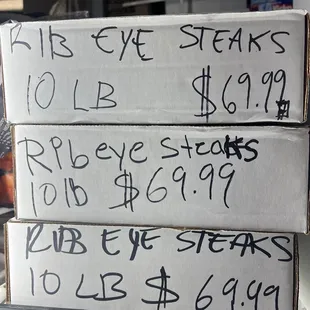 RIB EYE STEAKS
10 LB $69.99
Ribeye steaks
10lb $69.99
RIB EYE STEAKS
10 LB $69.99